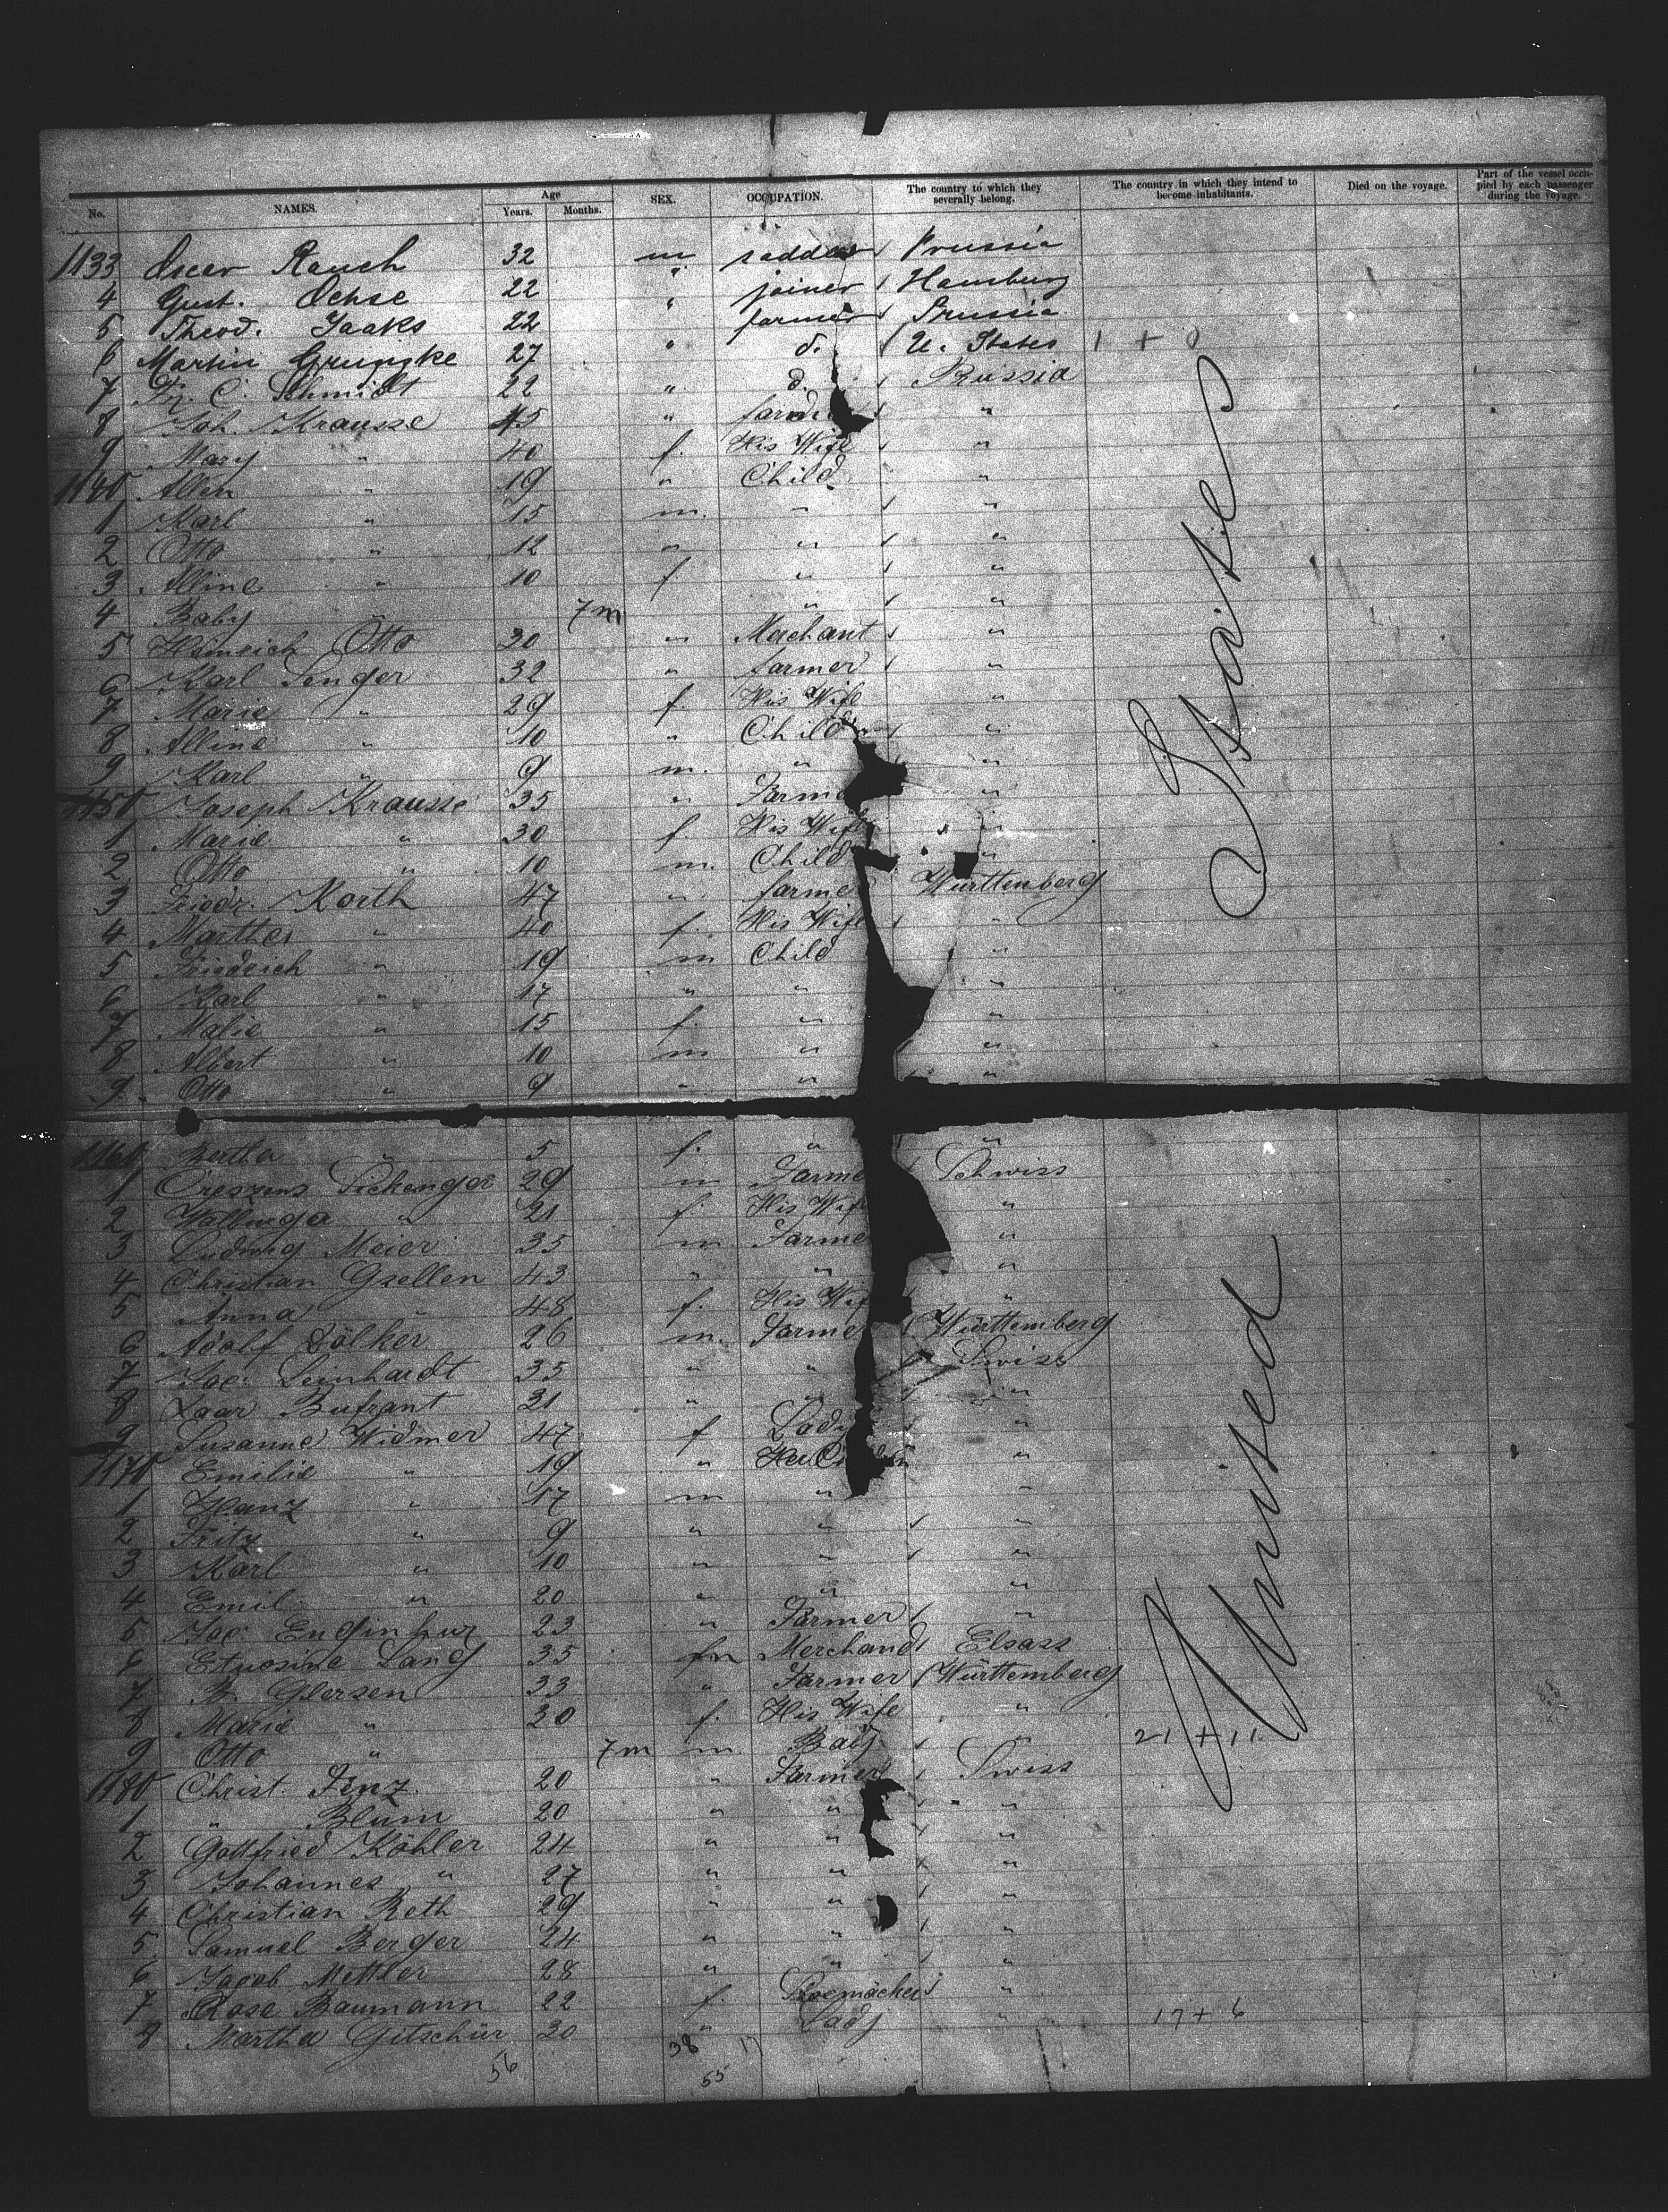 No. NAMES. Age Years. Months. SEX. OCCUPATION. The country to which they severally belong. The country in which they intend to become inhabitants. Died on the voyage. Part of the vessel occupied by each passenger during the voyage.
1133 Oscar Rauch 32 m saddler Prussia
4 Gust. Ochse 22 " joiner Hamburg
5 Theod. Jaaks 22 " farmer Prussia
6 Martin 27 " d. U. States 1 + 0
7 Fr. C. Schmidt 22 " d. Russia
8 Joh. Krausse 45 " "
9 Mary " 40 f. His Wife "
1140 Allen " 19 " Child "
1 Karl " 15 m. " "
2 Otto " 12 " " "
3 Alline " 10 f " "
4 Baby " 7m " "
5 Heinrich Otto 30 " Mechant "
6 Karl Senger 32 " farmer "
7 Marie " 29 f. His Wife "
8 Alline " 10 " Child "
9 Karl " 9 m. " "
1150 Joseph Krausse 35 " Farme "
1 Marie " 30 f. His Wife "
2 Otto " 10 m. Child "
3 Friedr. Korth 47 " farmer Württenberg
4 Marther " 40 f. His Wife "
5 Friedrich " 19 m Child "
6 Karl " 17 " " "
7 Malie " 15 f. " "
8 Albert " 10 m " "
9 Otto " 9 " " "
1160 Bertha " 5 f. " "
1 Creszens 29 m Farme Schwiss
2 Wallburga " 21 f. His Wif "
3 Ludwig Meier 35 m Farme "
4 Christian Gsellen 43 " " "
5 Anna " 48 f. His Wif "
6 Adolf Dölker 26 m. Farme Württemberg
7 Jac: Leinhardt 35 " " Swiss
8 Bufrant 31 " " "
9 Susanne Widmer 47 f Lady "
1170 Emilie " 19 " Her "
1 Hanz " 17 m " "
2 Fritz " 9 " " "
3 Karl " 10 " " "
4 Emil " 20 " " "
5 Jac: 23 " Farmer "
6 Lang 35 m Merchand Elsass
7 B. Glersen 33 " Farmer Württemberg
8 Marie " 30 f. His Wife "
9 Otto " 7m m. Baby " 21 + 11
1180 Christ. Jenz 20 " Farmer Swiss
1 " Blum 20 " " "
2 Gottfried Köhler 24 " " "
3 Johannes " 27 " " "
4 Christian Reth 29 " " "
5 Samuel Berger 24 " " "
6 Jacob Mettler 28 " " "
7 Rose Baumann 22 f. "
8 Martha Gitschür 30 " Lady " 17 + 6
56 38 17
55
United States